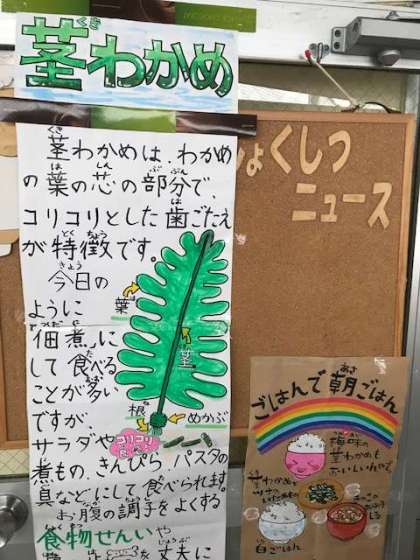 茎わかめ
茎わかめは、わかめ
の葉の芯の部分で、
コリコリとした歯ごたえ
が特徴です。
今日の
ように
佃煮にして食べる
ことが多い
ですが、
サラダや
煮もの、きんぴら、パスタの
具などにして食べられます。
お腹の調子をよくする
食物せんいや
丈夫に
葉
茎
根
めかぶ
コリコリ
ょくしつ
ニュース
ごはんで朝ごはん
梅味の
茎わかめも
おいしいんやで。
茎わかめ
白ごはん